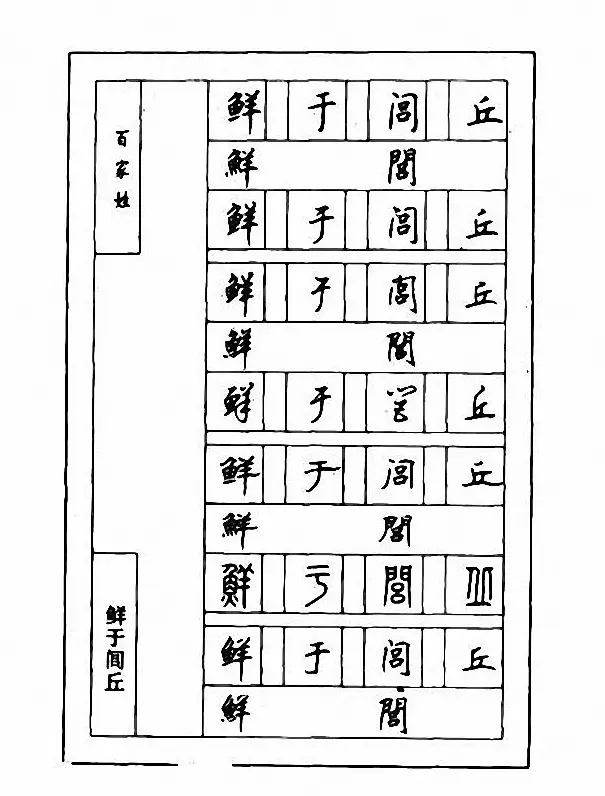 百家姓
鲜于闾丘
鲜 于 闾 丘
鮮 閭
鲜 于 闾 丘
鲜 于 闾 丘
鮮 閭
鲜 于 闾 丘
鲜 于 闾 丘
鮮 閭
鮮 于 閭 丘
鲜 于 闾 丘
鮮 閭